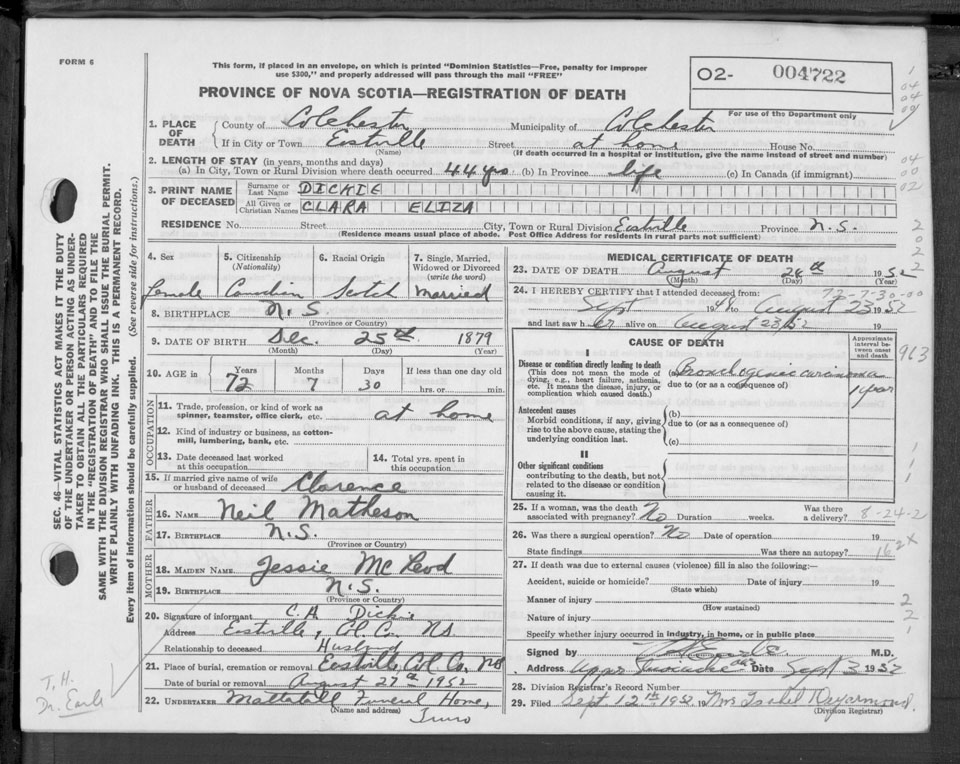 FORM 6
This form, if placed in an envelope, on which is printed "Dominion Statistics—Free, penalty for improper
use $300," and properly addressed will pass through the mail "FREE"
O2- 004722
PROVINCE OF NOVA SCOTIA—REGISTRATION OF DEATH
For use of the Department only
1. PLACE OF DEATH County of Colchester Municipality of Colchester
If in City or Town Eastville Street at home House No.
(Name) (If death occurred in a hospital or institution, give the name instead of street and number)
2. LENGTH OF STAY (in years, months and days)
(a) In City, Town or Rural Division where death occurred 44 yrs (b) In Province life (c) In Canada (if immigrant)
3. PRINT NAME OF DECEASED Surname or Last Name DICKIE
All Given or Christian Names CLARA ELIZA
RESIDENCE No. Street City, Town or Rural Division Eastville Province N.S.
(Residence means usual place of abode. Post Office Address for residents in rural parts not sufficient)
4. Sex 5. Citizenship (Nationality) 6. Racial Origin 7. Single, Married, Widowed or Divorced (write the word)
female Canadian Scotch Married
8. BIRTHPLACE N.S.
(Province or Country)
9. DATE OF BIRTH Dec. 25th 1879
(Month) (Day) (Year)
10. AGE in Years Months Days If less than one day old
72 7 30 hrs. or min.
OCCUPATION
11. Trade, profession, or kind of work as spinner, teamster, office clerk, etc. at home
12. Kind of industry or business, as cotton-mill, lumbering, bank, etc.
13. Date deceased last worked at this occupation 14. Total yrs. spent in this occupation
15. If married give name of wife or husband of deceased Clarence
FATHER
16. NAME Neil Matheson
17. BIRTHPLACE N.S.
(Province or Country)
MOTHER
18. MAIDEN NAME Jessie McLeod
19. BIRTHPLACE N.S.
(Province or Country)
20. Signature of informant C.A. Dickie
Address Eastville, Col. Co. NS
Relationship to deceased Husband
21. Place of burial, cremation or removal Eastville Col Co. NS
Date of burial or removal August 27th 1952
22. UNDERTAKER Mattatall Funeral Home,
(Name and address) Truro
MEDICAL CERTIFICATE OF DEATH
23. DATE OF DEATH August 24th 1952
(Month) (Day) (Year)
72-7-30-00
24. I HEREBY CERTIFY that I attended deceased from:
Sept 19 to August 23 1952
and last saw her alive on August 23/52 19
CAUSE OF DEATH
Approximate interval between onset and death
963
I
Disease or condition directly leading to death
(This does not mean the mode of dying, e.g., heart failure, asthenia, etc. It means the disease, injury, or complication which caused death.)
(a) Bronchogenic carcinoma
due to (or as a consequence of) 1 year
Antecedent causes
Morbid conditions, if any, giving rise to the above cause, stating the underlying condition last.
(b)
due to (or as a consequence of)
(c)
II
Other significant conditions
contributing to the death, but not related to the disease or condition causing it.
25. If a woman, was the death associated with pregnancy? No Duration weeks. Was there a delivery? 8-24-2
26. Was there a surgical operation? No Date of operation 19
State findings Was there an autopsy?
162x
27. If death was due to external causes (violence) fill in also the following:—
Accident, suicide or homicide? Date of injury 19
(State which)
Manner of injury
(How sustained)
Nature of injury
Specify whether injury occurred in industry, in home, or in public place
Signed by M.D.
Address Upper Date Sept 3 1952
28. Division Registrar's Record Number
29. Filed Sept 12th 1952 19 Mrs Isabel
(Division Registrar)
SEC. 46—VITAL STATISTICS ACT MAKES IT THE DUTY
OF THE UNDERTAKER OR PERSON ACTING AS UNDER-
TAKER TO OBTAIN ALL THE PARTICULARS REQUIRED
IN THE "REGISTRATION OF DEATH" AND TO FILE THE
SAME WITH THE DIVISION REGISTRAR WHO SHALL ISSUE THE BURIAL PERMIT.
WRITE PLAINLY WITH UNFADING INK. THIS IS A PERMANENT RECORD.
Every item of information should be carefully supplied. (See reverse side for instructions.)
T.H.
Dr. Earle